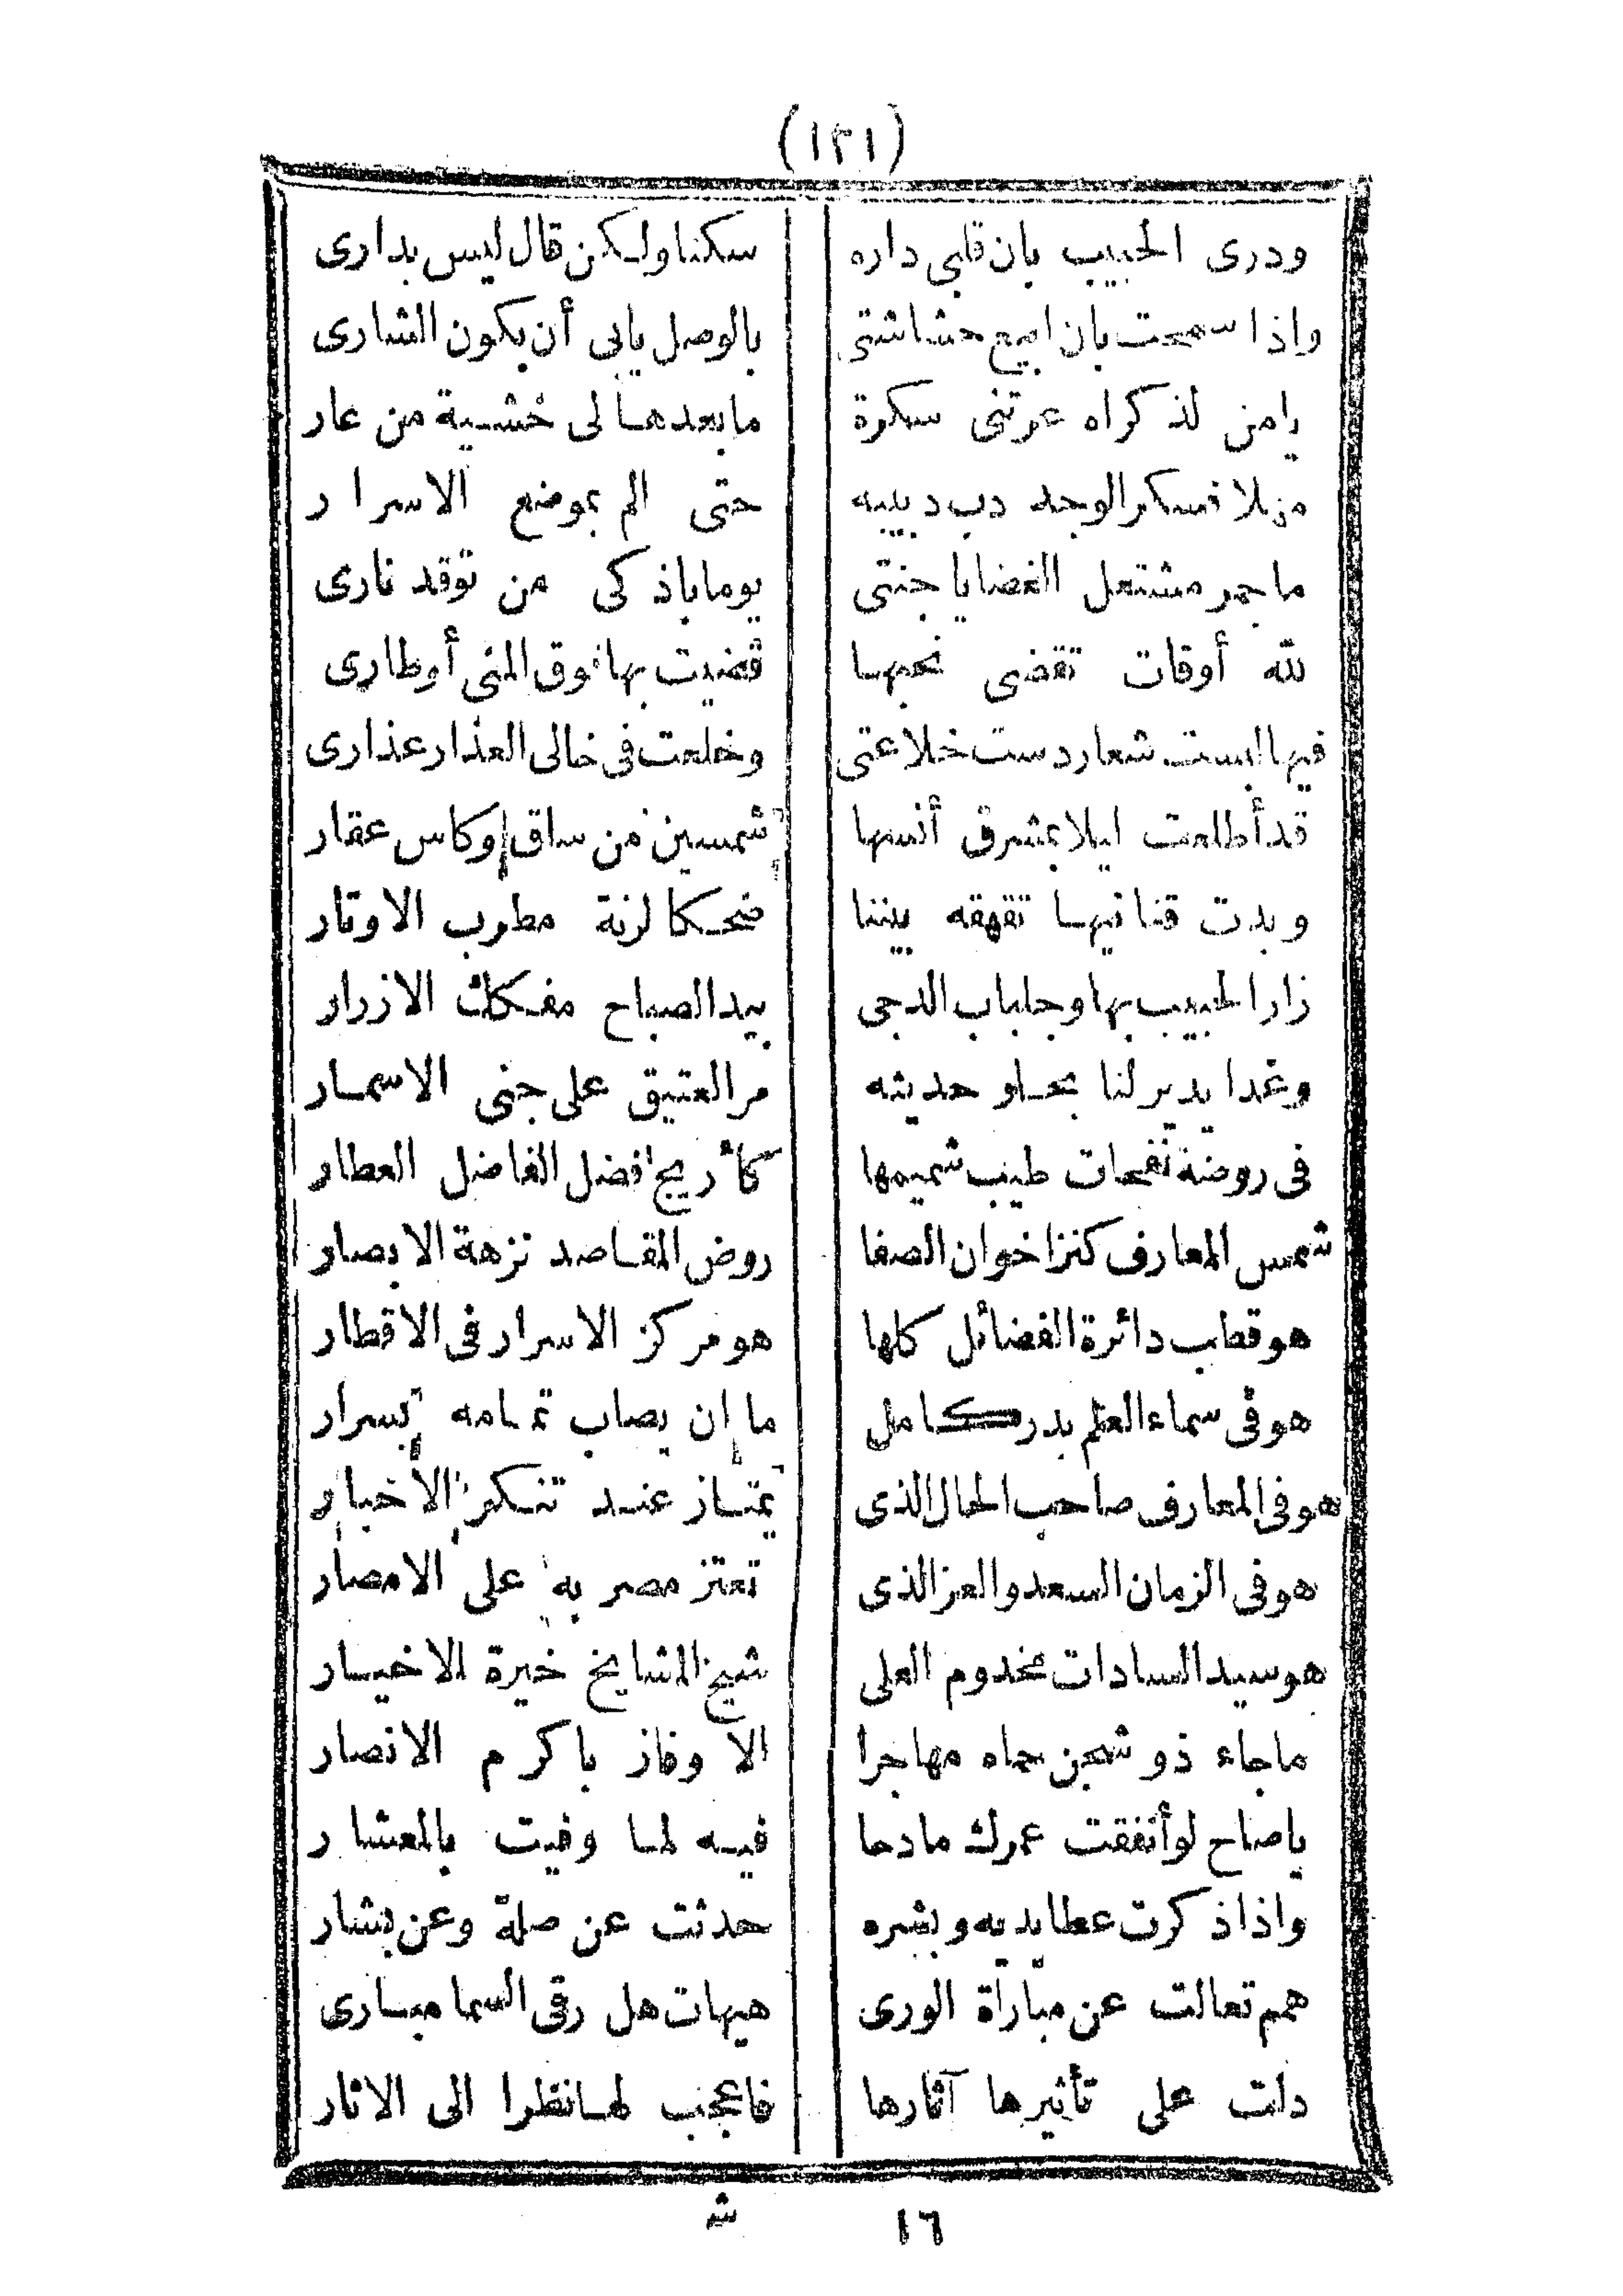 (١٢١)
ودرى الحبيب بان قلبى داره سكنا ولكن قال ليس بدارى
واذا سمحت بان ابيع حشاشتى بالوصل يابى أن يكون الشارى
يامن لذكراه عرتنى سكرة مابعدها لى خشية من عار
مزلا فسكر الوجد دب دبيبه حتى الم بموضع الاسرار
ماجمر مشتعل الغضا ياجنتى يوما باذكى من توقد نارى
لله أوقات تقضى نحبها قضيت بها فوق المنى أوطارى
فيها البست شعار دست خلاعتى وخلعت فى خالى العذار عذارى
قد أطلعت ليلا بمشرق أنسها شمسين من ساق وكاس عقار
وبدت قنانيها تقهقه بيننا ضحكا لرنة مطرب الاوتار
زار الحبيب بها وجلباب الدجى بيد الصباح مفكك الازرار
وغدا يدير لنا بحلو حديثه مر العتيق على جنى الاسمار
فى روضة نفحات طيب شميمها كأريج افضل الفاضل العطار
شمس المعارف كنز اخوان الصفا روض المقاصد نزهة الابصار
هو قطب دائرة الفضائل كلها هو مركز الاسرار فى الاقطار
هو فى سماء العلم بدر كامل ما إن يصاب تمامه بسرار
هو فى المعارف صاحب الحال الذى يمتاز عند تنكر الأخبار
هو فى الزمان السعد والعز الذى تعتز مصر به على الامصار
هو سيد السادات مخدوم العلى شيخ المشايخ خيرة الاخيار
ماجاء ذو شجن حماه مهاجرا الا وفاز باكرم الانصار
ياصاح لو أنفقت عمرك مادحا فيه لما وفيت بالمعشار
واذا ذكرت عطا يديه وبشره حدثت عن صلة وعن بشار
همم تعالت عن مباراة الورى هيهات هل رقى السما مبارى
دلت على تأثيرها آثارها فاعجب لها نظرا الى الاثار
١٦ ش